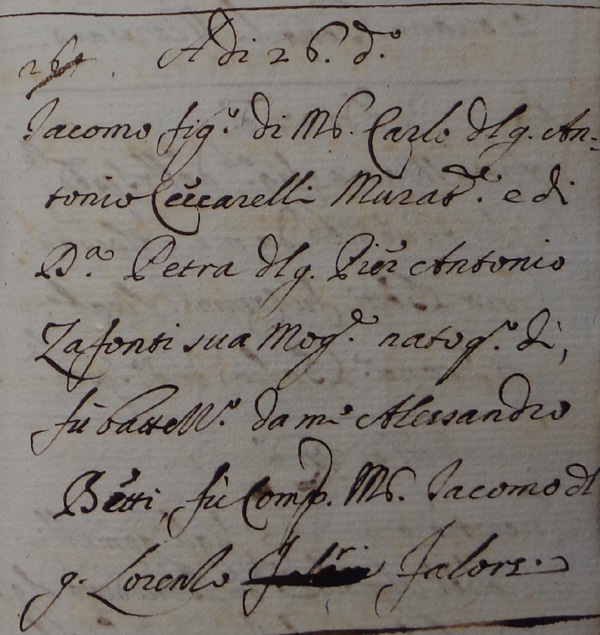 264. A dì 26. d.º
Iacomo fig.º di M.º Carlo del q. An-
tonio Ceccarelli Murat.re e di
D.ª Petra del q. Pier Antonio
Zafonti sua Mog.e nato q.º dì,
fù batte.º da me Alessandro
Betti, fù Comp. M.º Iacomo del
q. Lorenzo